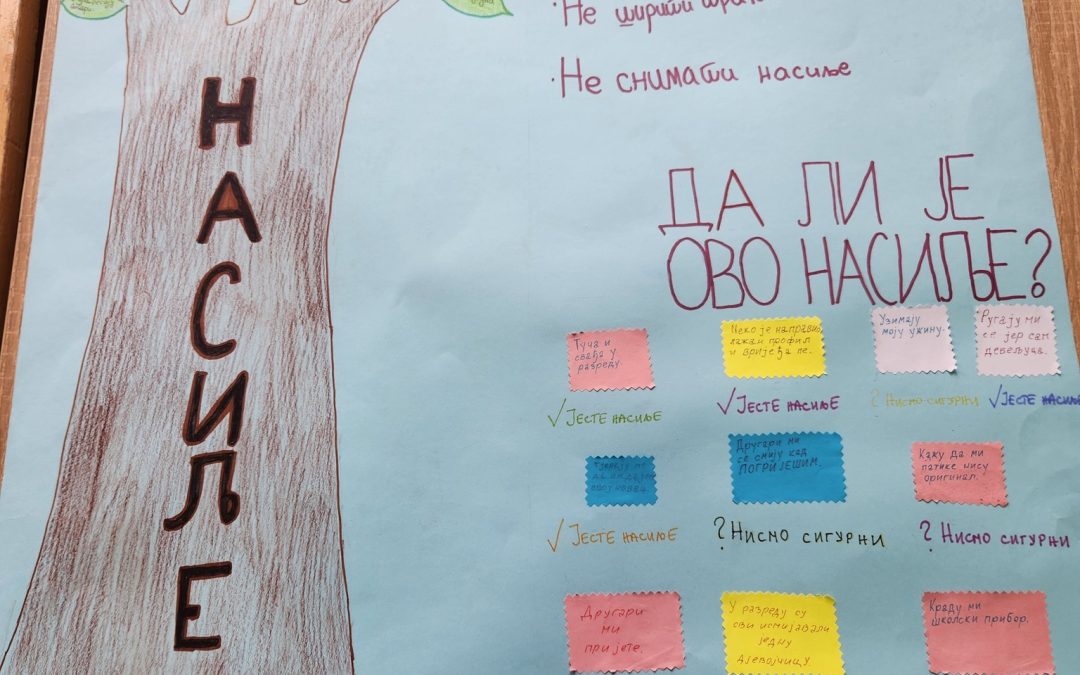 НАСИЉЕ
·Не ширити
·Не снимати насиље
ДА ЛИ ЈЕ
ОВО НАСИЉЕ?
Туча и
свађа у
разреду.
√ ЈЕСТЕ НАСИЉЕ
Неко је направио
лажан профил
и вријеђа ме.
√ ЈЕСТЕ НАСИЉЕ
Узимају
моју ужину.
? НИСМО СИГУРНИ
Ругају ми
се јер сам
дебељуца.
√ ЈЕСТЕ НАСИЉЕ
Тјерају ме
да им дајем
свој новац.
√ ЈЕСТЕ НАСИЉЕ
Другари ми
се смију кад
ПОГРИЈЕШИМ.
? НИСМО СИГУРНИ
Кажу да ми
патике нису
оригинал.
? НИСМО СИГУРНИ
Другари
ми
пријете.
У разреду су
сви исмијавали
једну
дјевојчицу.
Краду ми
школски прибор.